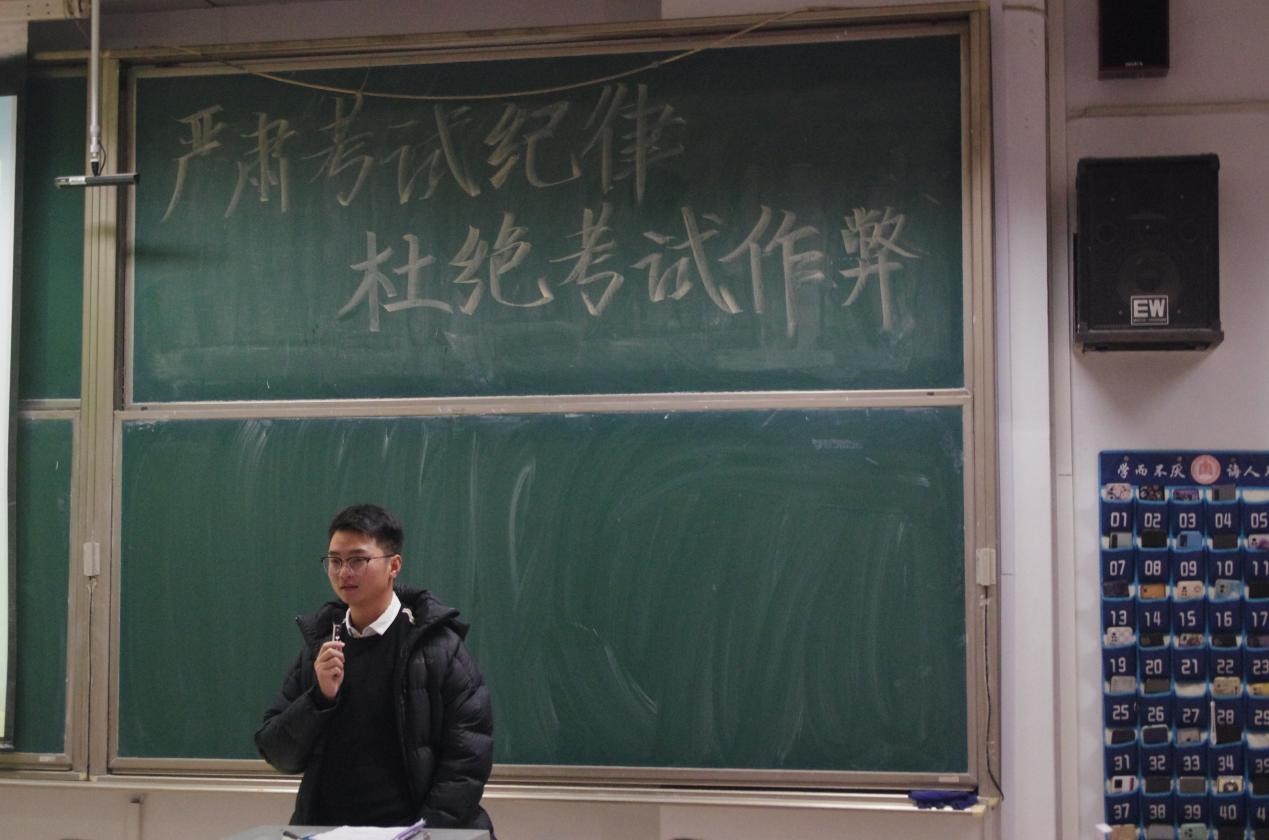 严肃考试纪律
杜绝考试作弊
EW
学而不厌 诲人
01 02 03 04 05
07 08 09 10 11
13 14 15 16 17
19 20 21 22 23
25 26 27 28 29
31 32 33 34
37 38 39 40